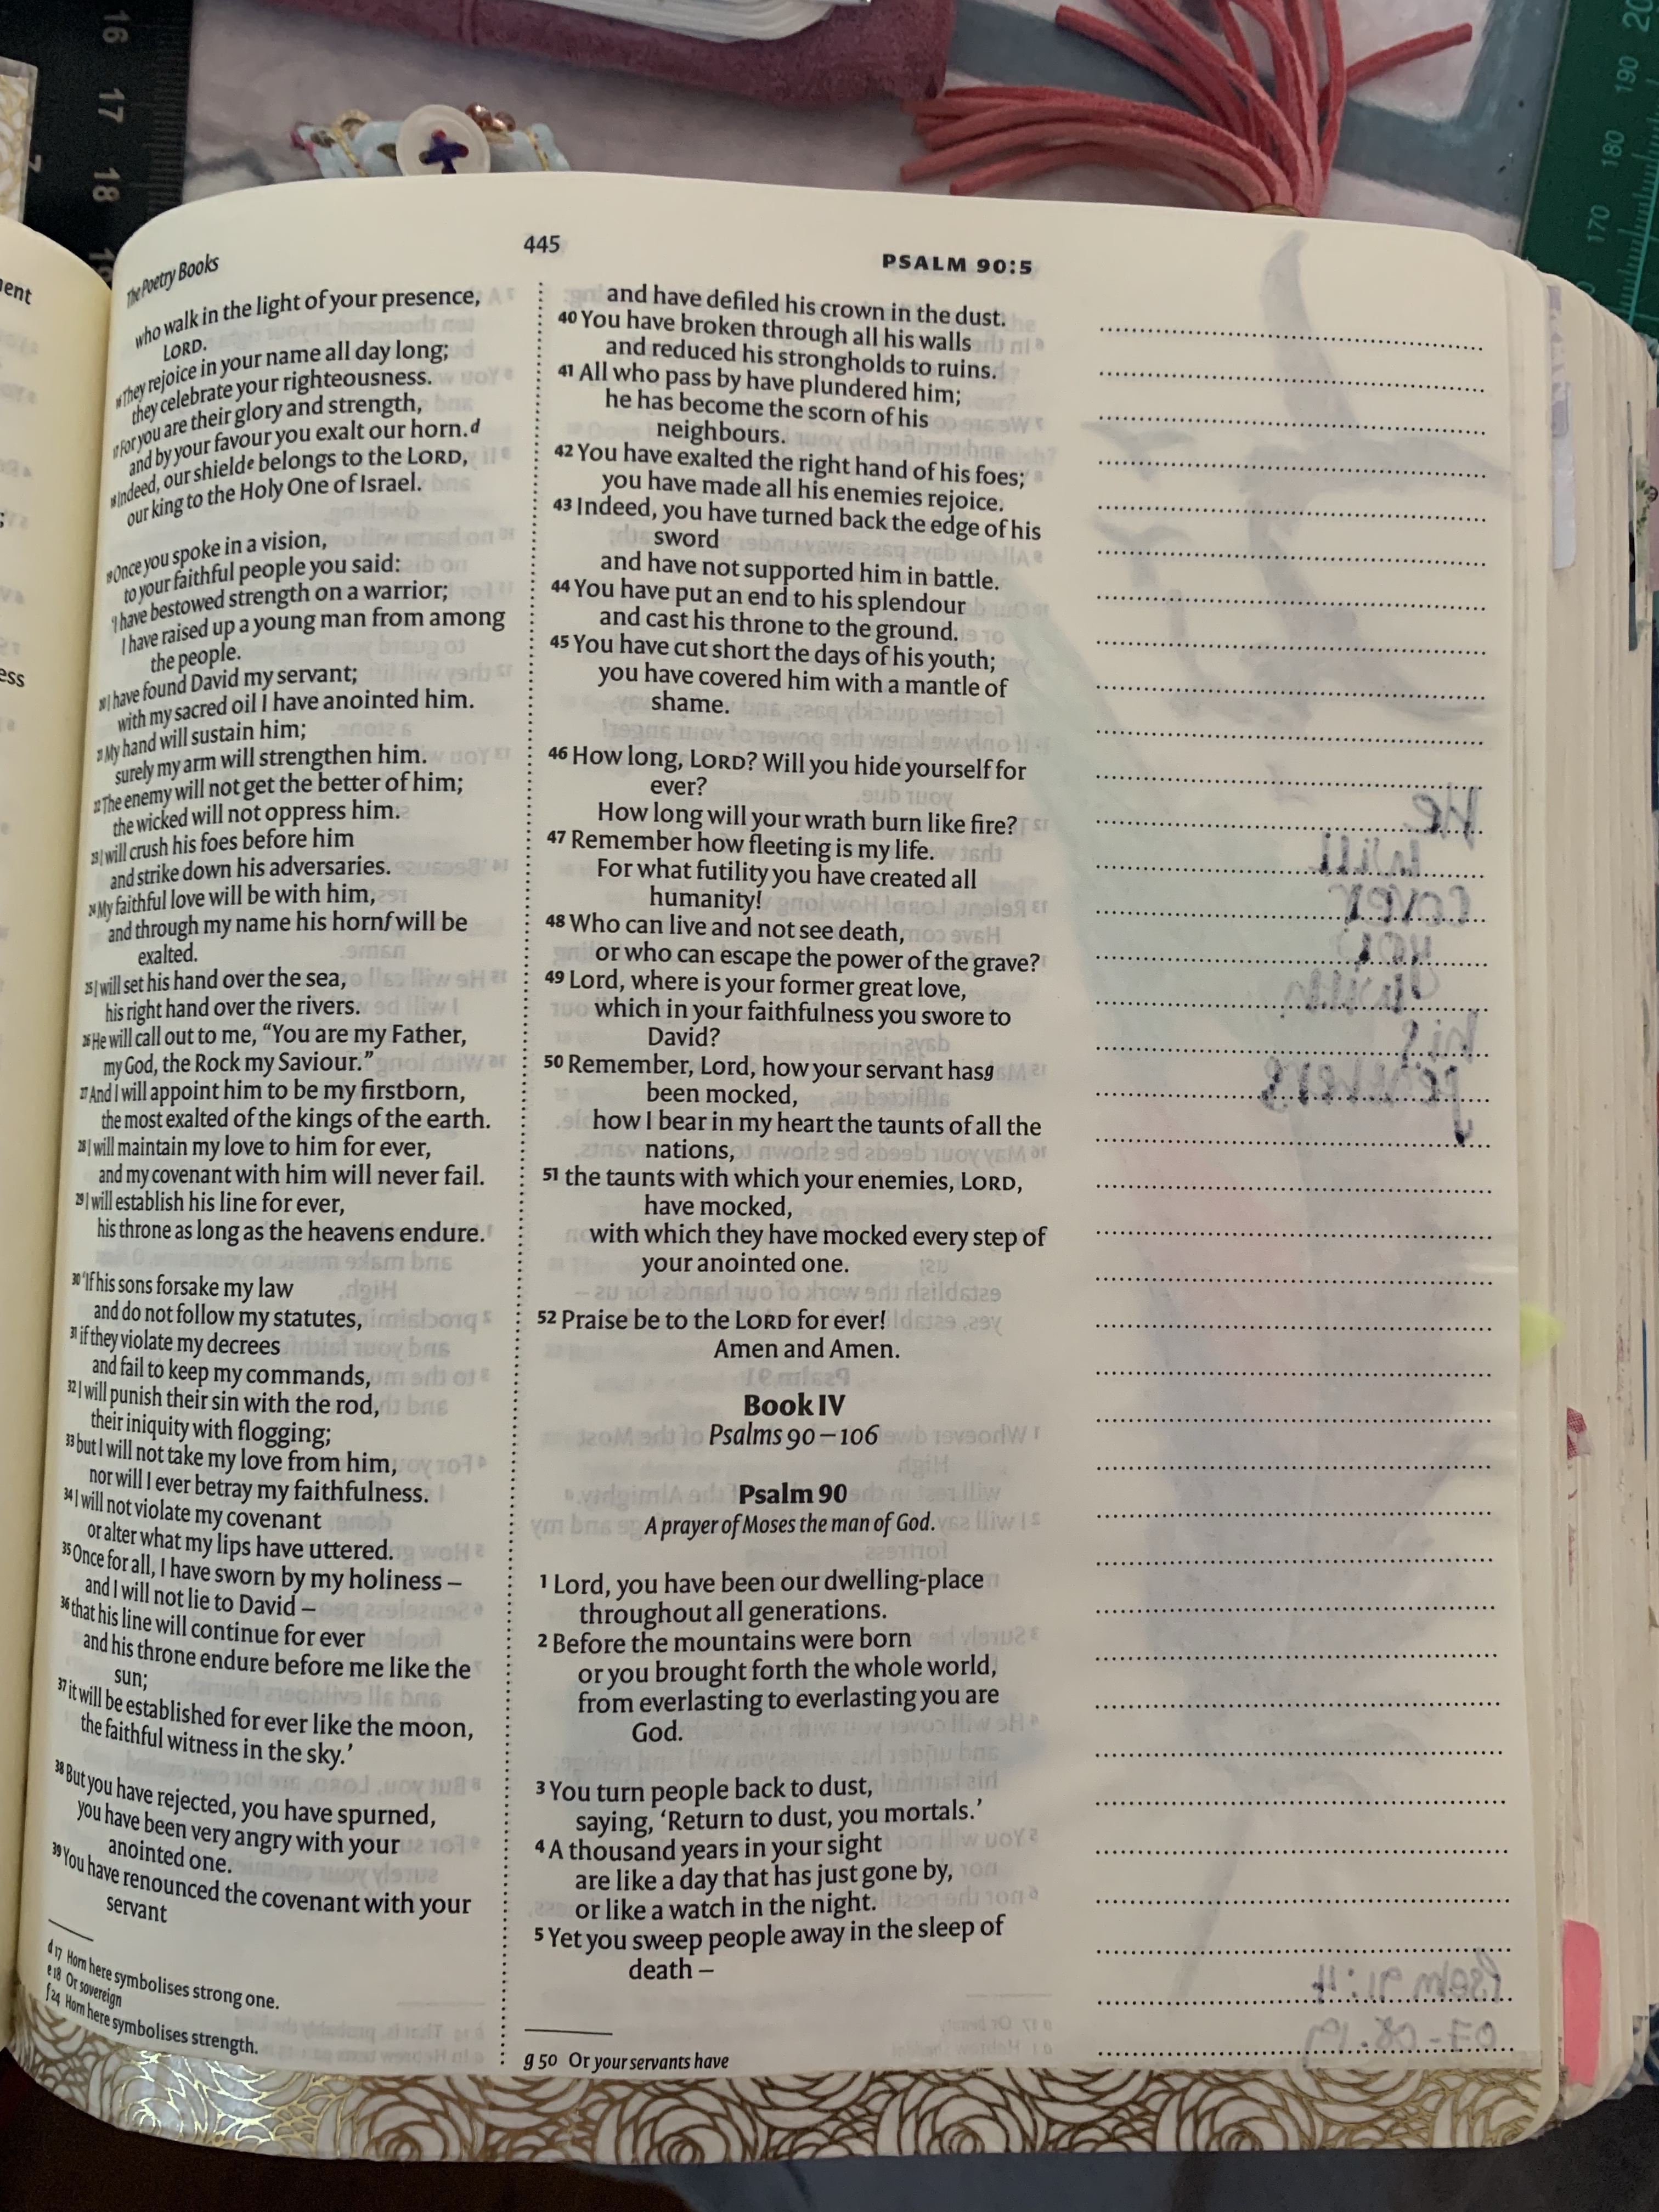 16
17
18
7
20
190
180
170
ent
ess
The Poetry Books
445
PSALM 90:5
who walk in the light of your presence,
LORD.
16 They rejoice in your name all day long;
they celebrate your righteousness.
17 For you are their glory and strength,
and by your favour you exalt our horn.d
18 Indeed, our shielde belongs to the LORD,
our king to the Holy One of Israel.
19 Once you spoke in a vision,
to your faithful people you said:
‘I have bestowed strength on a warrior;
I have raised up a young man from among
the people.
20 I have found David my servant;
with my sacred oil I have anointed him.
21 My hand will sustain him;
surely my arm will strengthen him.
22 The enemy will not get the better of him;
the wicked will not oppress him.
23 I will crush his foes before him
and strike down his adversaries.
24 My faithful love will be with him,
and through my name his hornf will be
exalted.
25 I will set his hand over the sea,
his right hand over the rivers.
26 He will call out to me, “You are my Father,
my God, the Rock my Saviour.”
27 And I will appoint him to be my firstborn,
the most exalted of the kings of the earth.
28 I will maintain my love to him for ever,
and my covenant with him will never fail.
29 I will establish his line for ever,
his throne as long as the heavens endure.
30 ‘If his sons forsake my law
and do not follow my statutes,
31 if they violate my decrees
and fail to keep my commands,
32 I will punish their sin with the rod,
their iniquity with flogging;
33 but I will not take my love from him,
nor will I ever betray my faithfulness.
34 I will not violate my covenant
or alter what my lips have uttered.
35 Once for all, I have sworn by my holiness –
and I will not lie to David –
36 that his line will continue for ever
and his throne endure before me like the
sun;
37 it will be established for ever like the moon,
the faithful witness in the sky.’
38 But you have rejected, you have spurned,
you have been very angry with your
anointed one.
39 You have renounced the covenant with your
servant
d 17 Horn here symbolises strong one.
e 18 Or sovereign
f 24 Horn here symbolises strength.
and have defiled his crown in the dust.
40 You have broken through all his walls
and reduced his strongholds to ruins.
41 All who pass by have plundered him;
he has become the scorn of his
neighbours.
42 You have exalted the right hand of his foes;
you have made all his enemies rejoice.
43 Indeed, you have turned back the edge of his
sword
and have not supported him in battle.
44 You have put an end to his splendour
and cast his throne to the ground.
45 You have cut short the days of his youth;
you have covered him with a mantle of
shame.
46 How long, LORD? Will you hide yourself for
ever?
How long will your wrath burn like fire?
47 Remember how fleeting is my life.
For what futility you have created all
humanity!
48 Who can live and not see death,
or who can escape the power of the grave?
49 Lord, where is your former great love,
which in your faithfulness you swore to
David?
50 Remember, Lord, how your servant hasg
been mocked,
how I bear in my heart the taunts of all the
nations,
51 the taunts with which your enemies, LORD,
have mocked,
with which they have mocked every step of
your anointed one.
52 Praise be to the LORD for ever!
Amen and Amen.
Book IV
Psalms 90–106
Psalm 90
A prayer of Moses the man of God.
1 Lord, you have been our dwelling-place
throughout all generations.
2 Before the mountains were born
or you brought forth the whole world,
from everlasting to everlasting you are
God.
3 You turn people back to dust,
saying, ‘Return to dust, you mortals.’
4 A thousand years in your sight
are like a day that has just gone by,
or like a watch in the night.
5 Yet you sweep people away in the sleep of
death –
g 50 Or your servants have
He
will
cover
you
with
his
feathers
Psalm 91:4
07-08-19